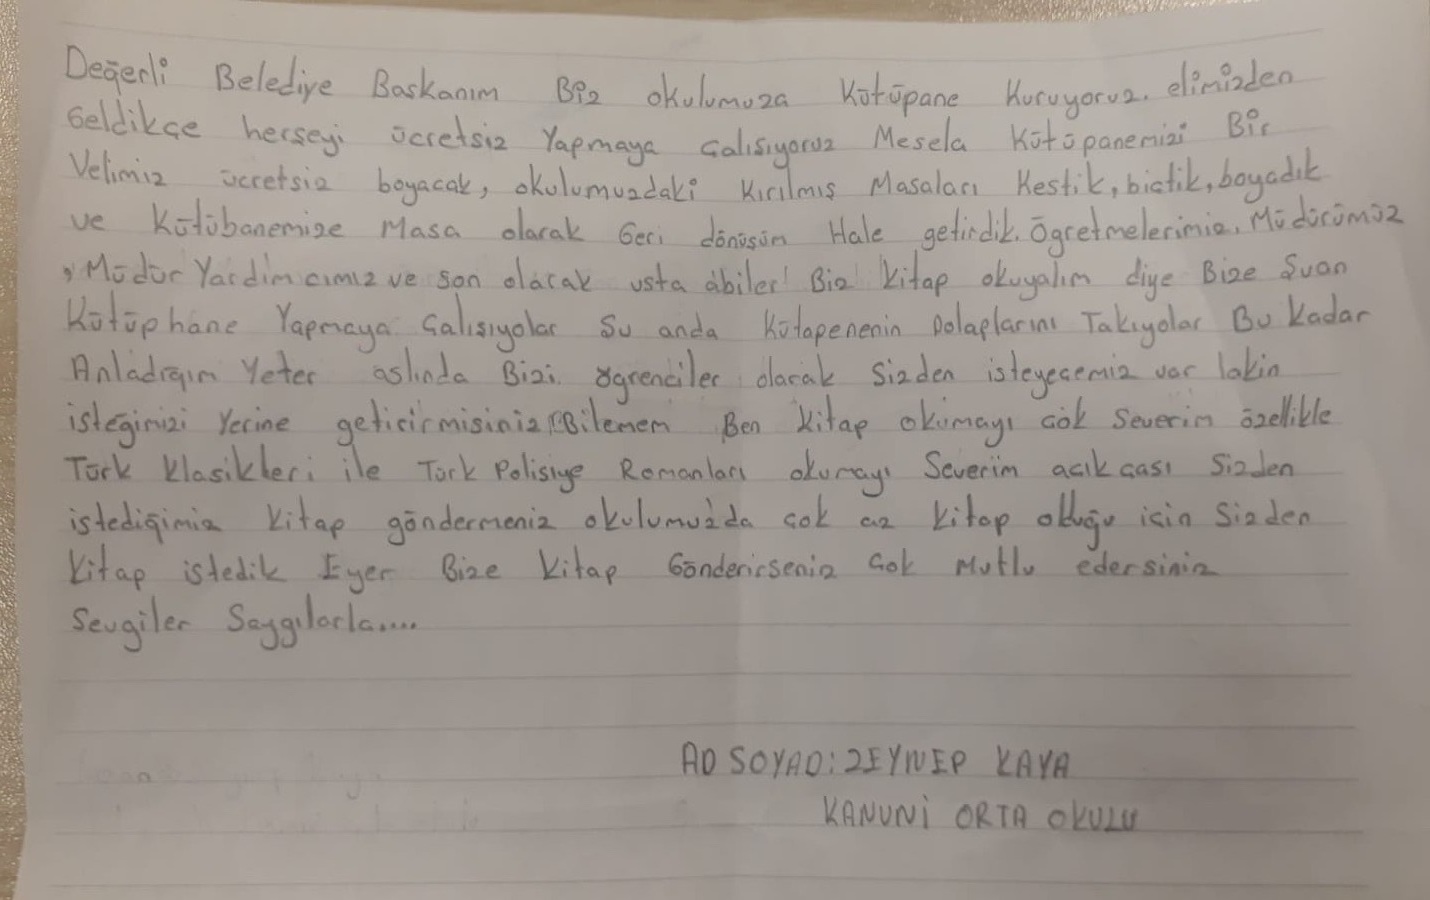 Değerli Belediye Baskanım Biz okulumuza Kütüpane Kuruyoruz. elimizden
Geldikçe herşeyi ücretsiz Yapmaya çalısıyoruz Mesela Kütüpanemizi Bir
Velimiz ücretsiz boyacak, okulumuzdaki Kırılmış Masaları Kestik, biçtik, boyadık
ve Kütübanemize Masa olarak Geri dönüşüm Hale getirdik. Ögretmelerimiz, Müdürümüz
, Müdür Yardimcımız ve son olarak usta abiler! Biz kitap okuyalım diye Bize Şuan
Kütüphane Yapmaya Çalışıyolar Su anda Kütapenenin Dolaplarını Takıyolar Bu kadar
Anladıgım Yeter aslında Bizi ögrenciler olarak Sizden isteyecemiz var lakin
isteğimizi Yerine getirirmisiniz Bilemem Ben kitap okumayı çok Severim özellikle
Türk Klasikleri ile Türk Polisiye Romanları okumayı Severim açıkcası Sizden
istediğimiz kitap göndermeniz okulumuzda çok az kitap olduğu için Sizden
kitap istedik Eyer Bize kitap Gönderirseniz Çok Mutlu edersiniz
Sevgiler Saygılarla....
AD SOYAD: ZEYNEP KAYA
KANUNİ ORTA OKULU